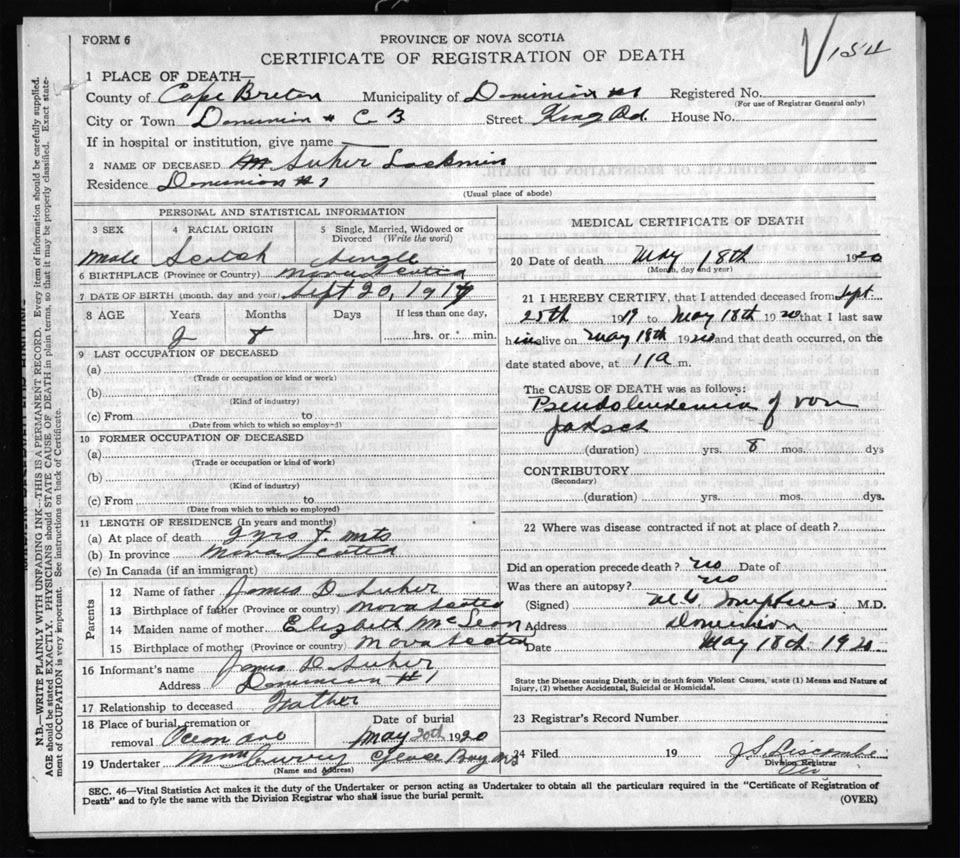 FORM 6
PROVINCE OF NOVA SCOTIA
CERTIFICATE OF REGISTRATION OF DEATH
154
1 PLACE OF DEATH—
County of Cape Breton Municipality of Dominion #1 Registered No.
(For use of Registrar General only)
City or Town Dominion # C B Street King Rd. House No.
If in hospital or institution, give name
2 NAME OF DECEASED Suher
Residence Dominion #1
(Usual place of abode)
PERSONAL AND STATISTICAL INFORMATION
3 SEX 4 RACIAL ORIGIN 5 Single, Married, Widowed or Divorced (Write the word)
Male Scotch Single
6 BIRTHPLACE (Province or Country) Nova Scotia
7 DATE OF BIRTH (month, day and year) Sept 20, 1917
8 AGE Years Months Days If less than one day,
2 8 hrs. or min.
9 LAST OCCUPATION OF DECEASED
(a)
(Trade or occupation or kind or work)
(b)
(Kind of industry)
(c) From to
(Date from which to which so employed)
10 FORMER OCCUPATION OF DECEASED
(a)
(Trade or occupation or kind of work)
(b)
(Kind of industry)
(c) From to
(Date from which to which so employed)
11 LENGTH OF RESIDENCE (In years and months)
(a) At place of death 2 yrs 8 mts
(b) In province Nova Scotia
(c) In Canada (if an immigrant)
Parents
12 Name of father James D Suher
13 Birthplace of father (Province or country) Nova Scotia
14 Maiden name of mother Elizabeth McLean
15 Birthplace of mother (Province or country) Nova Scotia
16 Informant's name James D Suher
Address Dominion #1
17 Relationship to deceased Father
18 Place of burial, cremation or removal Ocean Ave Date of burial May 20th 1920
19 Undertaker Curry Glace Bay NS
(Name and Address)
MEDICAL CERTIFICATE OF DEATH
20 Date of death May 18th 1920
(Month, day and year)
21 I HEREBY CERTIFY, that I attended deceased from Sept
25th 1919 to May 18th 1920 that I last saw
him alive on May 18th 1920 and that death occurred, on the
date stated above, at 11 a m.
The CAUSE OF DEATH was as follows:
Pseudoleukemia of von
Jaksch
(duration) yrs. 8 mos. dys
CONTRIBUTORY
(Secondary)
(duration) yrs. mos. dys.
22 Where was disease contracted if not at place of death?
Did an operation precede death? no Date of
Was there an autopsy? no
(Signed) M.D.
Address Dominion
Date May 18th 1920
State the Disease causing Death, or in death from Violent Causes, state (1) Means and Nature of
Injury, (2) whether Accidental, Suicidal or Homicidal.
23 Registrar's Record Number
24 Filed 19 J.S. Liscombe
Division Registrar
SEC. 46—Vital Statistics Act makes it the duty of the Undertaker or person acting as Undertaker to obtain all the particulars required in the "Certificate of Registration of
Death" and to fyle the same with the Division Registrar who shall issue the burial permit.
(OVER)
N.B.—WRITE PLAINLY WITH UNFADING INK—THIS IS A PERMANENT RECORD. Every item of information should be carefully supplied.
AGE should be stated EXACTLY. PHYSICIANS should STATE CAUSE OF DEATH in plain terms, so that it may be properly classified. Exact state-
ment of OCCUPATION is very important. See instructions on back of Certificate.